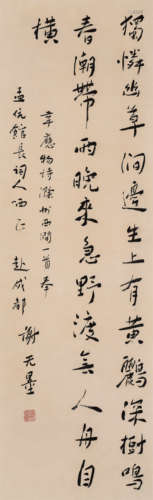 獨憐幽草澗邊生上有黃鸝深樹鳴
春潮帶雨晚來急野渡無人舟自
橫
韋應物詩滁州西澗一首奉
孟伉館長詞人哂正
成都
謝无量